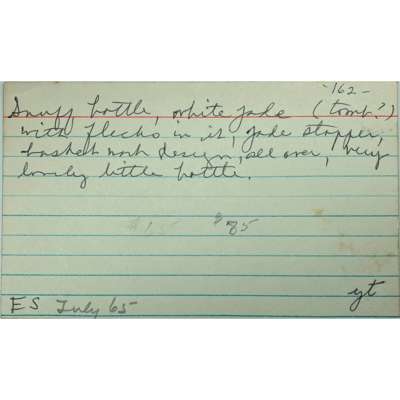 -162-
Snuff bottle, white jade (tomb?)
with flecks in it, jade stopper,
basket work design, all over, very
lovely little bottle.
$85
yt
E S July 65